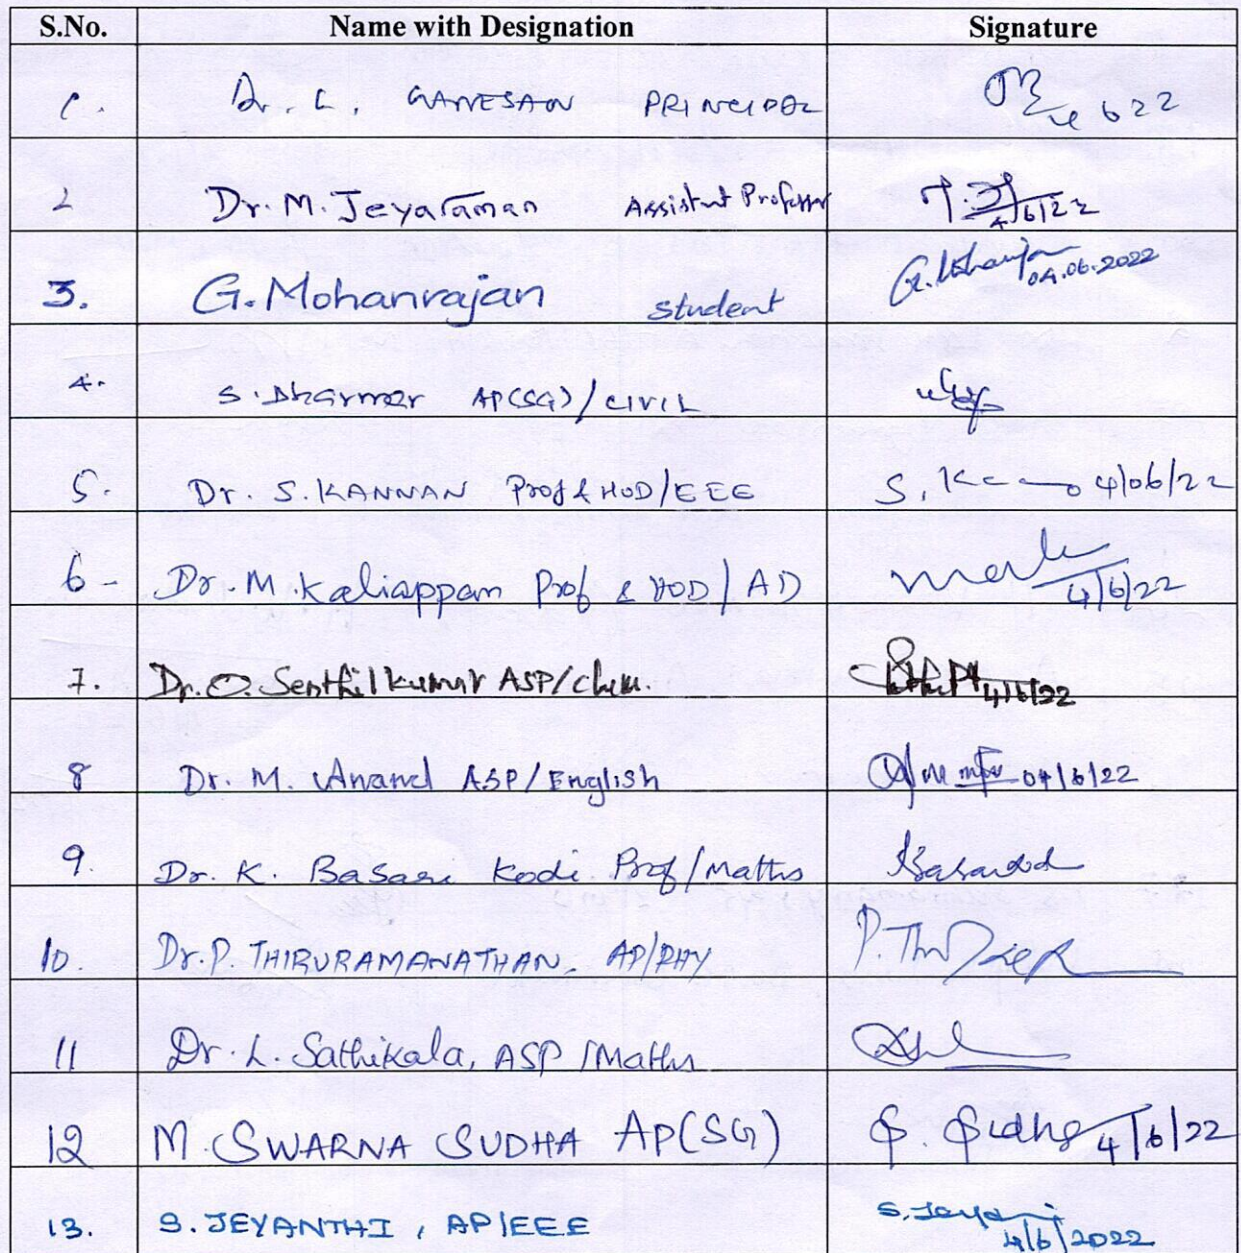 S.No. Name with Designation Signature
1. Dr. L. GANESAN PRINCIPAL 622
2 Dr. M. Jeyaraman Assistant Professor 4/6/22
3. G. Mohanrajan student 04.06.2022
4. S. Dharmar AP(SG)/CIVIL
5. Dr. S. KANNAN Prof & HOD/EEE S. K 4/06/22
6 - Dr. M. Kaliappan Prof & HOD / AD 4/6/22
7. Dr. O. Senthilkumar ASP/Chem. 4/6/22
8 Dr. M. Anand ASP/English 04/6/22
9. Dr. K. Basari Kodi Prof/Maths
10. Dr. P. THIRURAMANATHAN, AP/PHY
11 Dr. L. Sathikala, ASP/Maths
12 M. SWARNA SUDHA AP(SG) 4/6/22
13. S. JEYANTHI, AP/EEE 4/6/2022